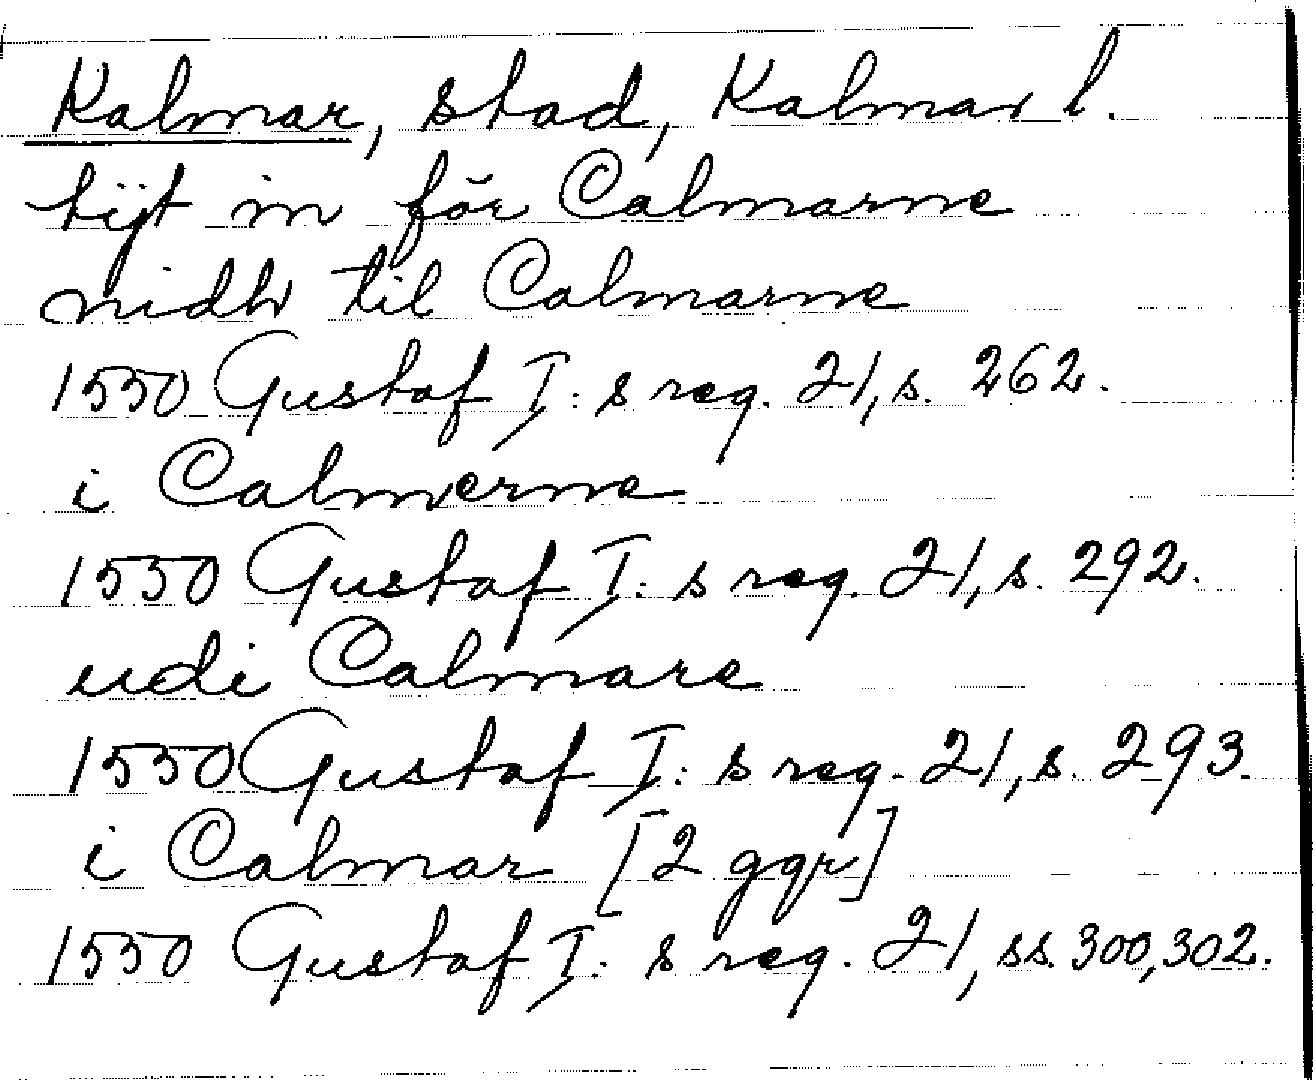 Kalmar, stad, Kalmar l.
tijt in för Calmarne
nidh til Calmarne
1550 Gustaf I:s reg. 21, s. 262.
i Calmerne
1550 Gustaf I:s reg. 21, s. 292.
udi Calmare
1550 Gustaf I:s reg. 21, s. 293.
i Calmar [2 ggr]
1550 Gustaf I:s reg. 21, ss. 300, 302.